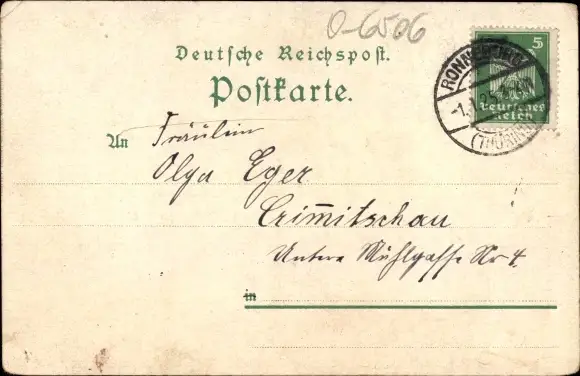 0-6506
Deutsche Reichspost.
Postkarte.
5
Deutsches
Reich
An Fräulein
Olga Eger
Crimmitschau
Untere Mühlgasse Nr 4.
in